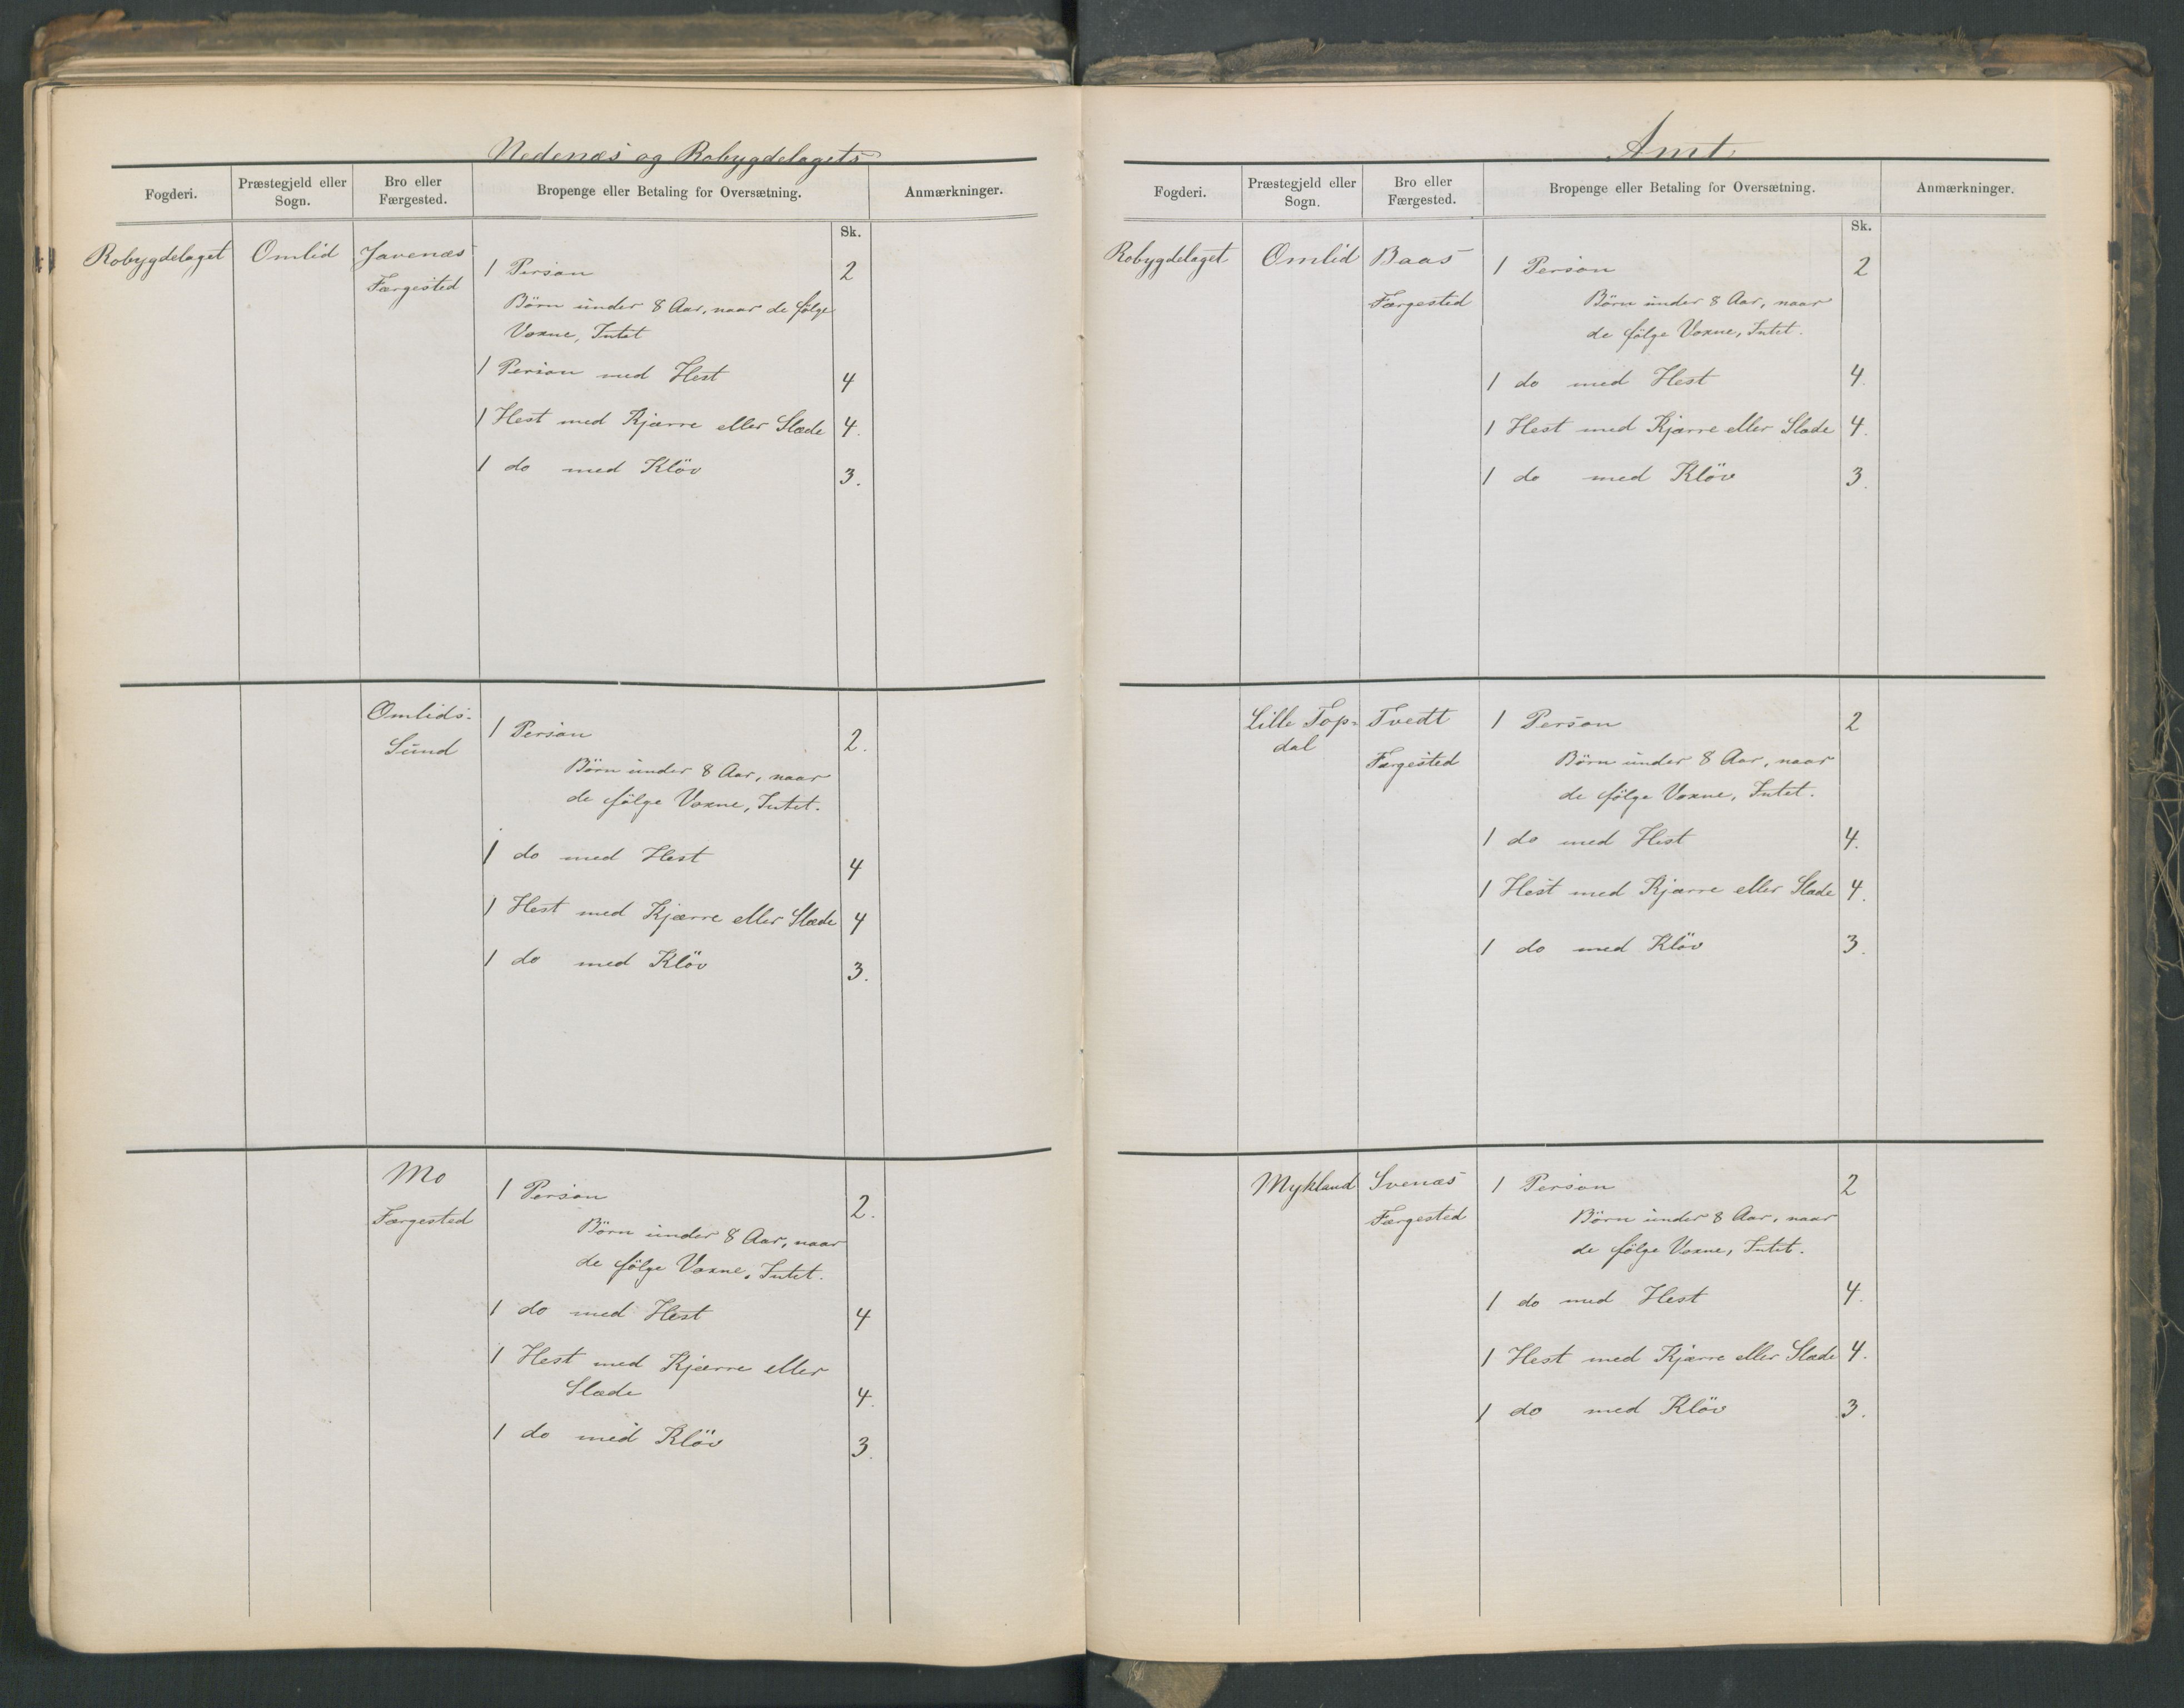 Nedenæs og Robygdelagets
Fogderi. Præstegjeld eller Sogn. Bro eller Færgested. Bropenge eller Betaling for Oversætning. Anmærkninger.
Sk.
Robygdelaget Omlid Javenæs
Færgested
1 Person 2
Börn under 8 Aar, naar de fölge
Voxne, Intet
1 Person med Hest 4
1 Hest med Kjærre eller Slæde 4.
1 do med Klöv 3.
Omlids-
Sund
1 Person 2.
Börn under 8 Aar, naar
de fölge Voxne, Intet.
1 do med Hest 4
1 Hest med Kjærre eller Slæde 4
1 do med Klöv 3.
Mo
Færgested
1 Person 2.
Börn under 8 Aar, naar
de fölge Voxne, Intet.
1 do med Hest 4
1 Hest med Kjærre eller
Slæde 4.
1 do med Klöv 3.
Amt
Fogderi. Præstegjeld eller Sogn. Bro eller Færgested. Bropenge eller Betaling for Oversætning. Anmærkninger.
Sk.
Robygdelaget Omlid Baas
Færgested
1 Person 2
Börn under 8 Aar, naar
de fölge Voxne, Intet.
1 do med Hest 4.
1 Hest med Kjærre eller Slæde 4.
1 do med Klöv 3.
Lille Top=
dal
Tvedt
Færgested
1 Person 2
Börn under 8 Aar, naar
de fölge Voxne, Intet.
1 do med Hest 4.
1 Hest med Kjærre eller Slæde 4.
1 do med Klöv 3.
Mykland Svenæs
Færgested
1 Person 2
Börn under 8 Aar, naar
de fölge Voxne, Intet.
1 do med Hest 4.
1 Hest med Kjærre eller Slæde 4.
1 do med Klöv 3.